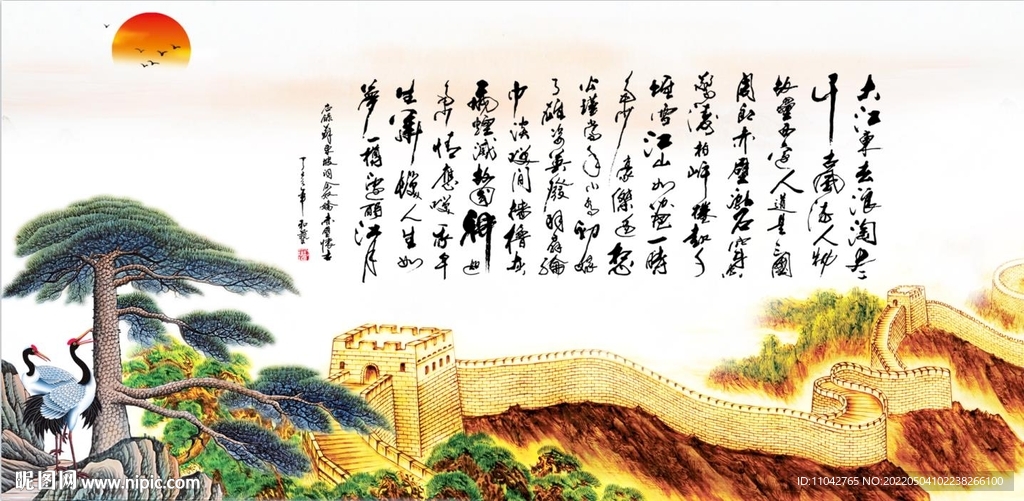 大江東去浪淘尽
千古風流人物
故壘西邊人道是三國
周郎赤壁亂石穿空
驚濤拍岸捲起千
堆雪江山如畫一時
多少豪傑遥想
公瑾當年小喬初嫁
了雄姿英發羽扇綸
巾談笑間檣櫓灰
飛煙滅故國神遊
多情應笑我早
生華髮人生如
夢一樽還酹江月
蘇東坡詞念奴嬌赤壁懷古
昵图网 www.nipic.com
ID:11042765 NO:20220504102238266100